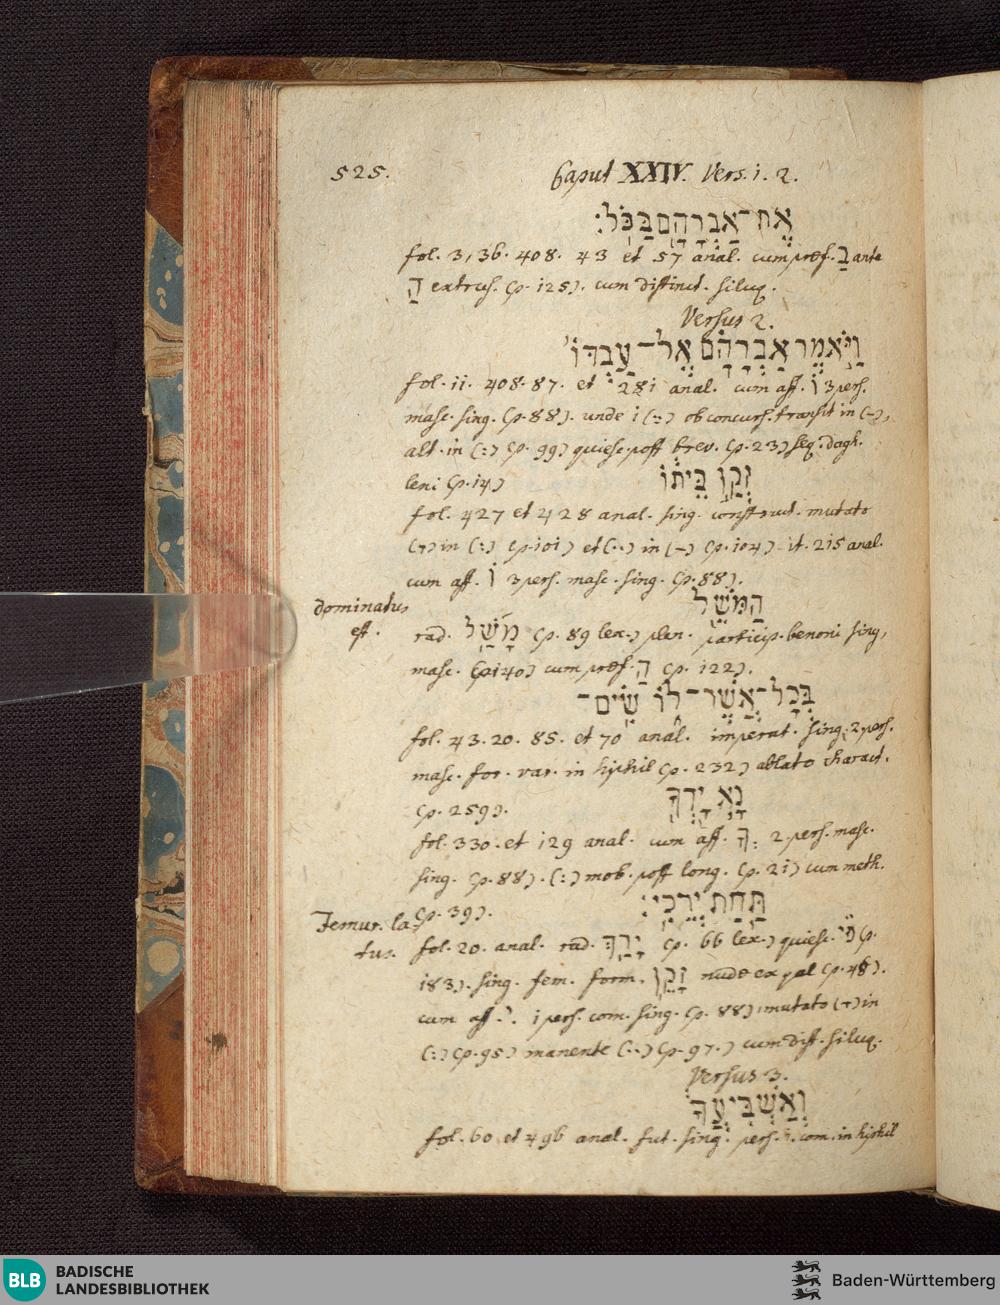 525.
Caput XXIV. Vers. 1. 2.
אֶת־אַבְרָהָם בַּכֹּֽל׃
fol. 3, 36. 408. 43 et 57 anal. cum præf. בַ ante
הַ extrus. (p. 125). cum distinct. silluq.
Versus 2.
וַיֹּאמֶר אַבְרָהָם אֶל־עַבְדּוֹ
fol. 11. 408. 87. et 281 anal. cum aff. וֹ 3 pers.
masc. sing. (p. 88). unde 1 (:) ob concurs. transit in (-),
alt. in (:) (p. 99) quiesc. post brev. (p. 23) seq. dagh.
leni (p. 14)
זְקַן בֵּיתוֹ
fol. 427 et 428 anal. sing. construct. mutato
(ָ) in (:) (p. 101) et (..) in (-) (p. 104). it. 215 anal.
cum aff. וֹ 3 pers. masc. sing. (p. 88).
הַמֹּשֵׁל
dominatus
est.
rad. מָשַׁל (p. 89 lex.) plen. particip. benoni sing,
masc. (p. 140) cum præf. הַ (p. 122).
בְּכָל־אֲשֶׁר־לוֹ שִׂים־
fol. 43. 20. 85. et 70 anal. imperat. sing. 2 pers.
masc. for. var. in hiphil (p. 232) ablato charact.
(p. 259).
נָא יָדְךָ
fol. 330. et 129 anal. cum aff. ךָ 2. pers. masc.
sing. (p. 88). (:) mob. post long. (p. 21) cum meth.
(p. 39).
תַּחַת יְרֵכִֽי׃
Femur. la-
tus.
fol. 20. anal. rad. יָרֵךְ (p. 66 lex.) quiesc. פי (p.
183). sing. fem. form. זָקֵן nude ex pal (p. 48).
cum aff. י. 1 pers. com. sing. (p. 88), mutato (ָ) in
(:) (p. 95) manente (..) (p. 97.) cum dist. silluq.
Versus 3.
וְאַשְׁבִּיעֲךָ
fol. 60 et 496 anal. fut. sing. pers. 1. com. in hiphil
BLB
BADISCHE
LANDESBIBLIOTHEK
Baden-Württemberg